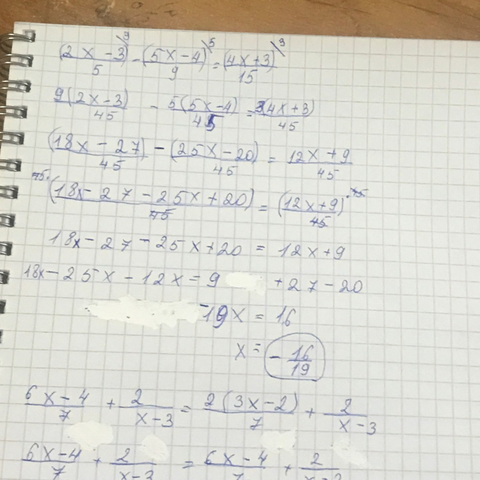 (2x-3)/5 \9 - (5x-4)/9 \5 = (4x+3)/15 \3
9(2x-3)/45 - 5(5x-4)/45 = 3(4x+3)/45
(18x-27)/45 - (25x-20)/45 = 12x+9/45
45·(18x-27-25x+20)/45 = (12x+9)·45/45
18x-27-25x+20 = 12x+9
18x-25x-12x=9 +27-20
-19x = 16
x = -16/19
6x-4/7 + 2/x-3 = 2(3x-2)/7 + 2/x-3
6x-4/7 + 2/x-3 = 6x-4/7 + 2/x-3